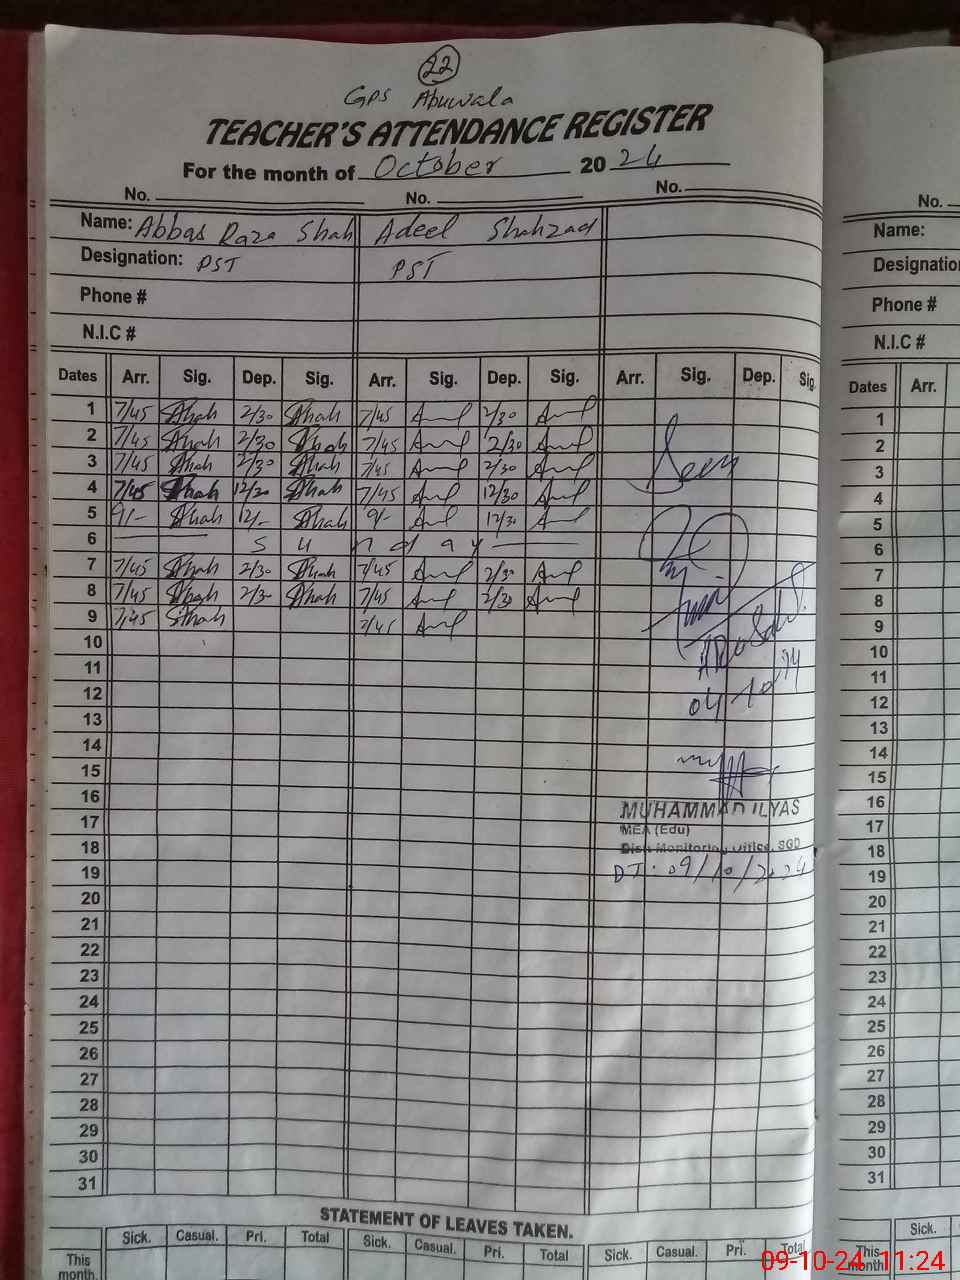 22
GPS Abuwala
TEACHER'S ATTENDANCE REGISTER
For the month of October 2024
No. No. No.
Name: Abbas Raza Shah Adeel Shahzad
Designation: PST PST
Phone #
N.I.C #
Dates Arr. Sig. Dep. Sig. Arr. Sig. Dep. Sig. Arr. Sig. Dep. Sig.
1 7/45 Shah 2/30 Shah 7/45 2/30
2 7/45 Shah 2/30 Shah 7/45 2/30
3 7/45 Shah 2/30 Shah 7/45 2/30
4 7/45 Shah 12/30 Shah 7/45 12/30
5 9/- Shah 12/- Shah 9/- 12/30
6 Sunday
7 7/45 Shah 2/30 Shah 7/45 2/30
8 7/45 Shah 2/30 Shah 7/45 2/30
9 7/45 Shah 7/45
10
11
12
13
14
15
16
17
18
19
20
21
22
23
24
25
26
27
28
29
30
31
Seen
04/10/24
MUHAMMAD ILYAS
MEA (Edu)
Distt Monitoring Office, SGD
DT. 09/10/2024
STATEMENT OF LEAVES TAKEN.
Sick. Casual. Pri. Total Sick. Casual. Pri. Total Sick. Casual. Pri. Total
This month.
No.
Name:
Designation
Phone #
N.I.C #
Dates Arr.
1
2
3
4
5
6
7
8
9
10
11
12
13
14
15
16
17
18
19
20
21
22
23
24
25
26
27
28
29
30
31
Sick.
This month
09-10-24 11:24